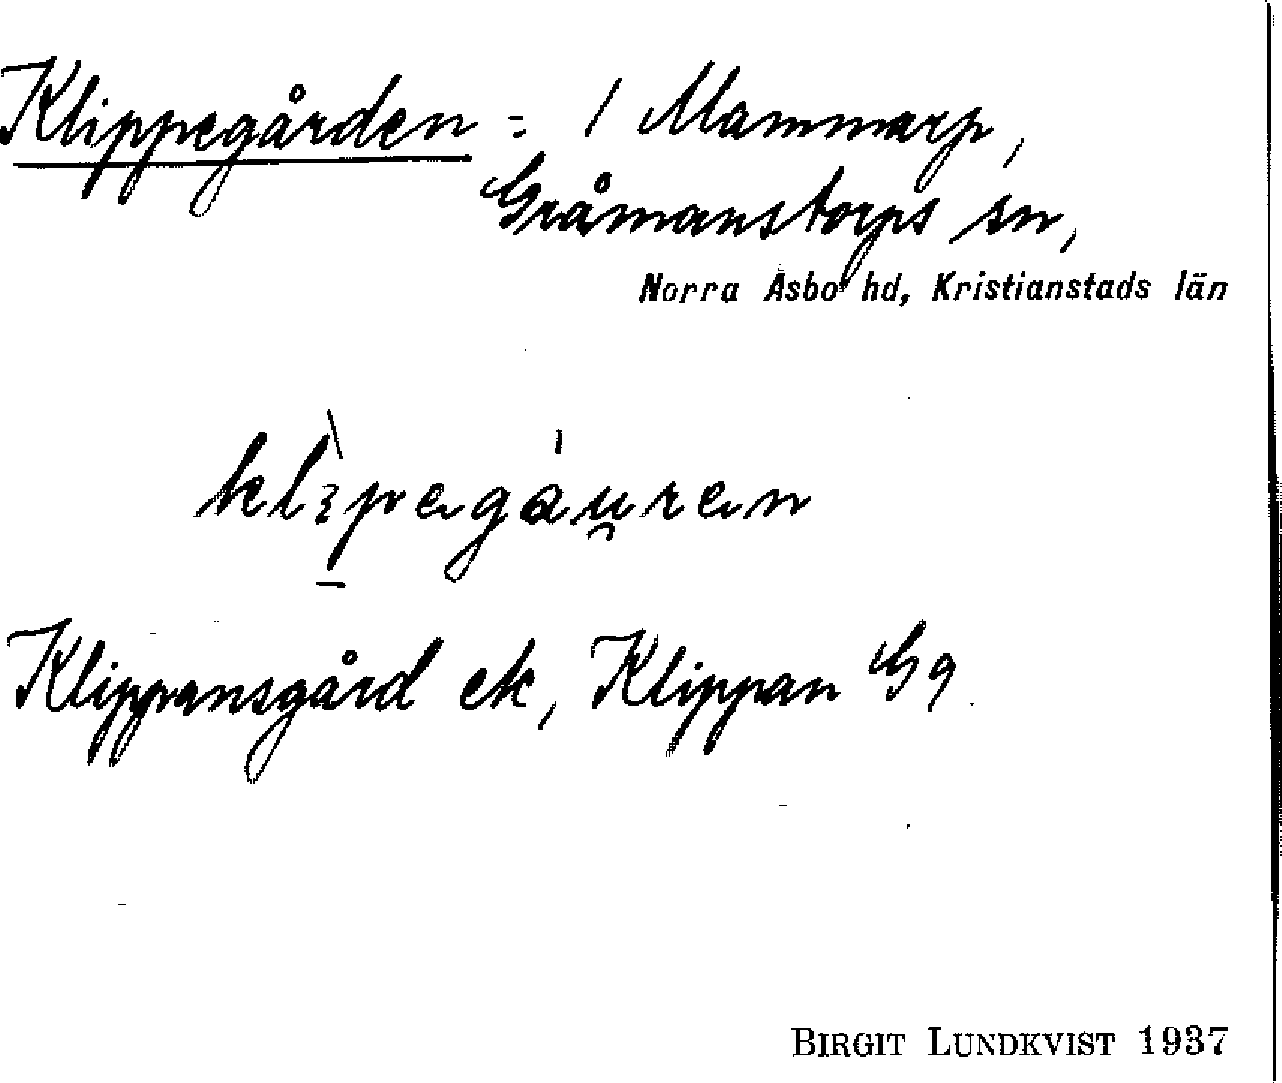 Klippegården = 1 Mammarp,
Gråmanstorps sn,
Norra Åsbo hd, Kristianstads län
Klippansgård ek, Klippan G9
BIRGIT LUNDKVIST 1937